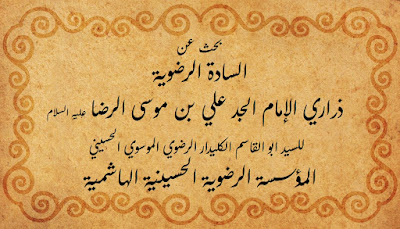 بحث عن
السادة الرضوية
ذراري الإمام الجد علي بن موسى الرضا عليه السلام
للسيد ابو القاسم الكليدار الرضوي الموسوي الحسيني
المؤسسة الرضوية الحسينية الهاشمية